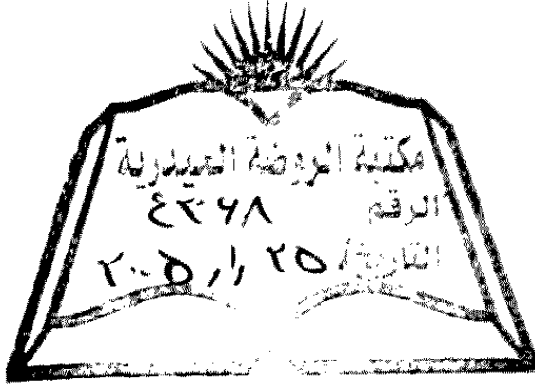 مكتبة الروضة الحيدرية
الرقم
التاريخ ٢٥ / ١ / ٢٠٠٥